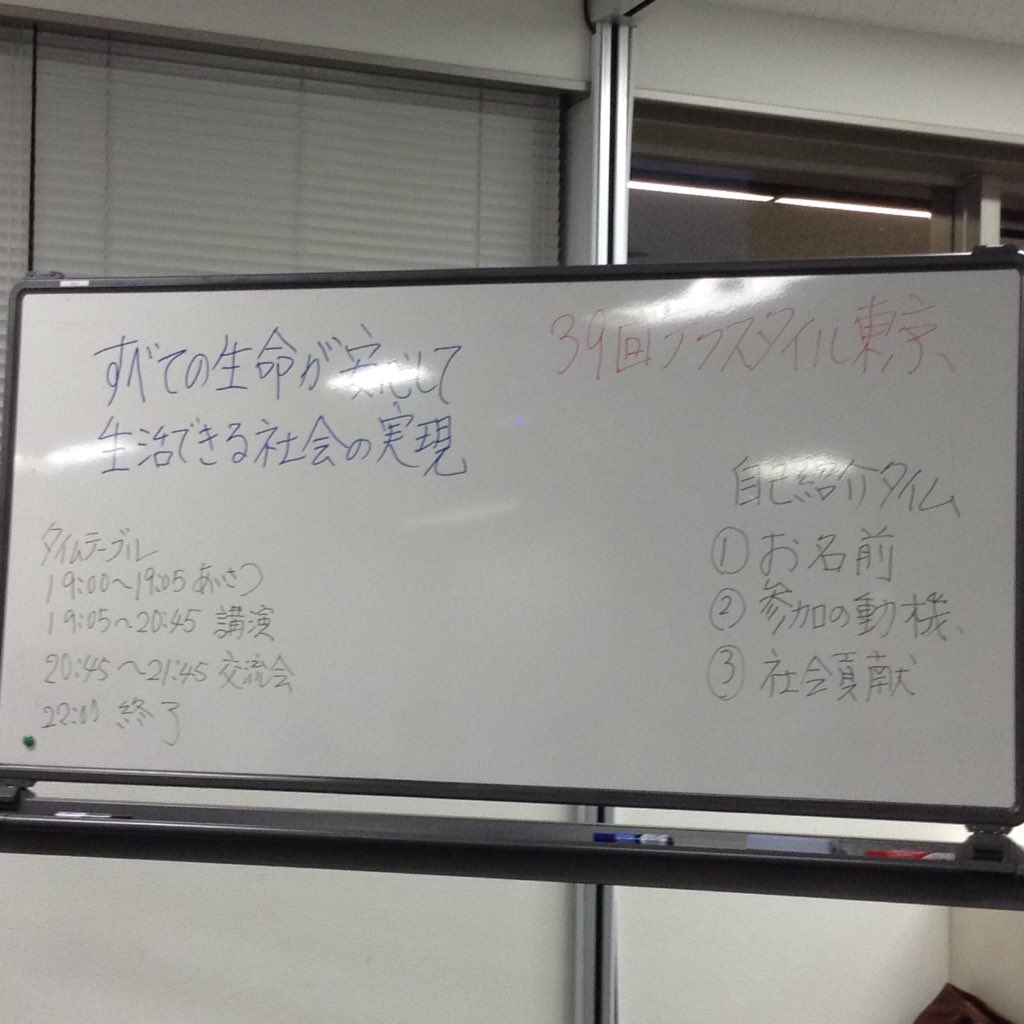 すべての生命が安心して
生活できる社会の実現
39回プラスタイル東京
タイムテーブル
19:00~19:05 あいさつ
19:05~20:45 講演
20:45~21:45 交流会
22:00 終了
自己紹介タイム
①お名前
②参加の動機
③社会貢献